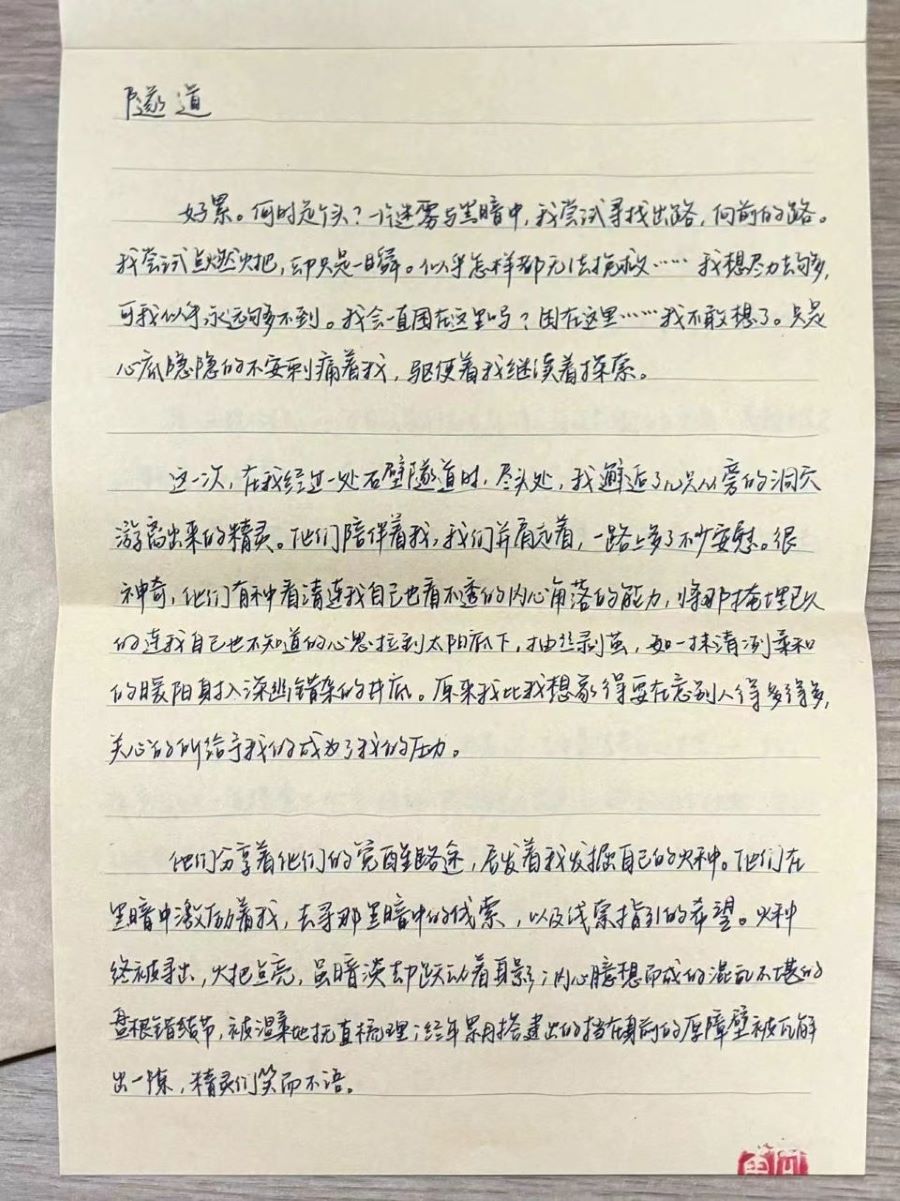 隧道
好累。何时是个头？一片迷雾与黑暗中，我尝试寻找出路，向前的路。
我尝试点燃火把，却只是一瞬。似乎怎样都无法挽救……我想尽力去够，
可我似乎永远够不到。我会一直困在这里吗？困在这里……我不敢想了。只是
心底隐隐的不安刺痛着我，驱使着我继续着探索。
这一次，在我经过一处石壁隧道时，尽头处，我邂逅了几只从旁的洞穴
游离出来的精灵。他们陪伴着我，我们并肩走着，一路上多了不少安慰。很
神奇，他们有种看清连我自己也看不透的内心角落的能力，将那掩埋已久
的连我自己也不知道的心思拉到太阳底下，抽丝剥茧，如一抹清冽柔和
的暖阳射入深幽错杂的井底。原来我比我想象得要在意别人得多得多，
关心的所给予我的成为了我的压力。
他们分享着他们的觉醒路途，启发着我发掘自己的火种。他们在
黑暗中激励着我，去寻那黑暗中的线索，以及线索指引的希望。火种
终被寻出，火把点亮，虽暗淡却跃动着身影；内心臆想而成的混乱不堪的
盘根错结节，被温柔地抚直梳理；经年累月搭建出的挡在身前的厚障壁被瓦解
出一隙，精灵们笑而不语。